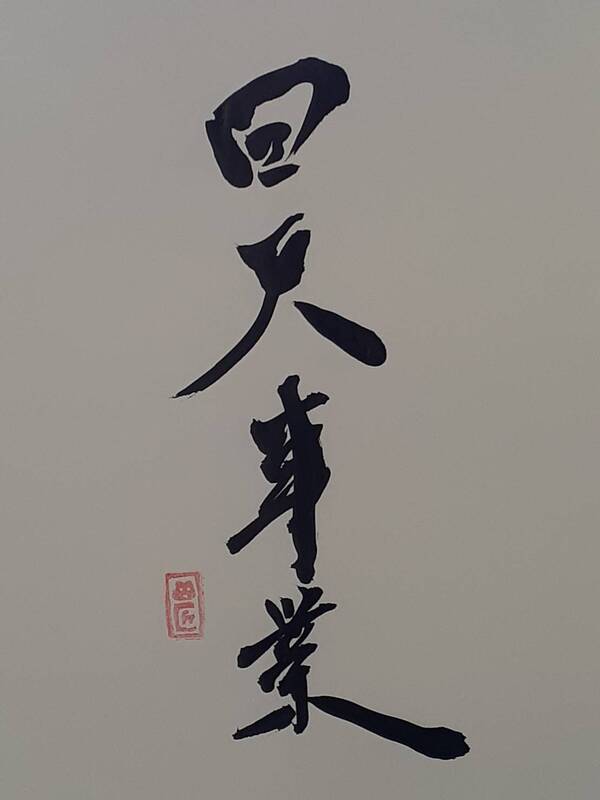 回天事業